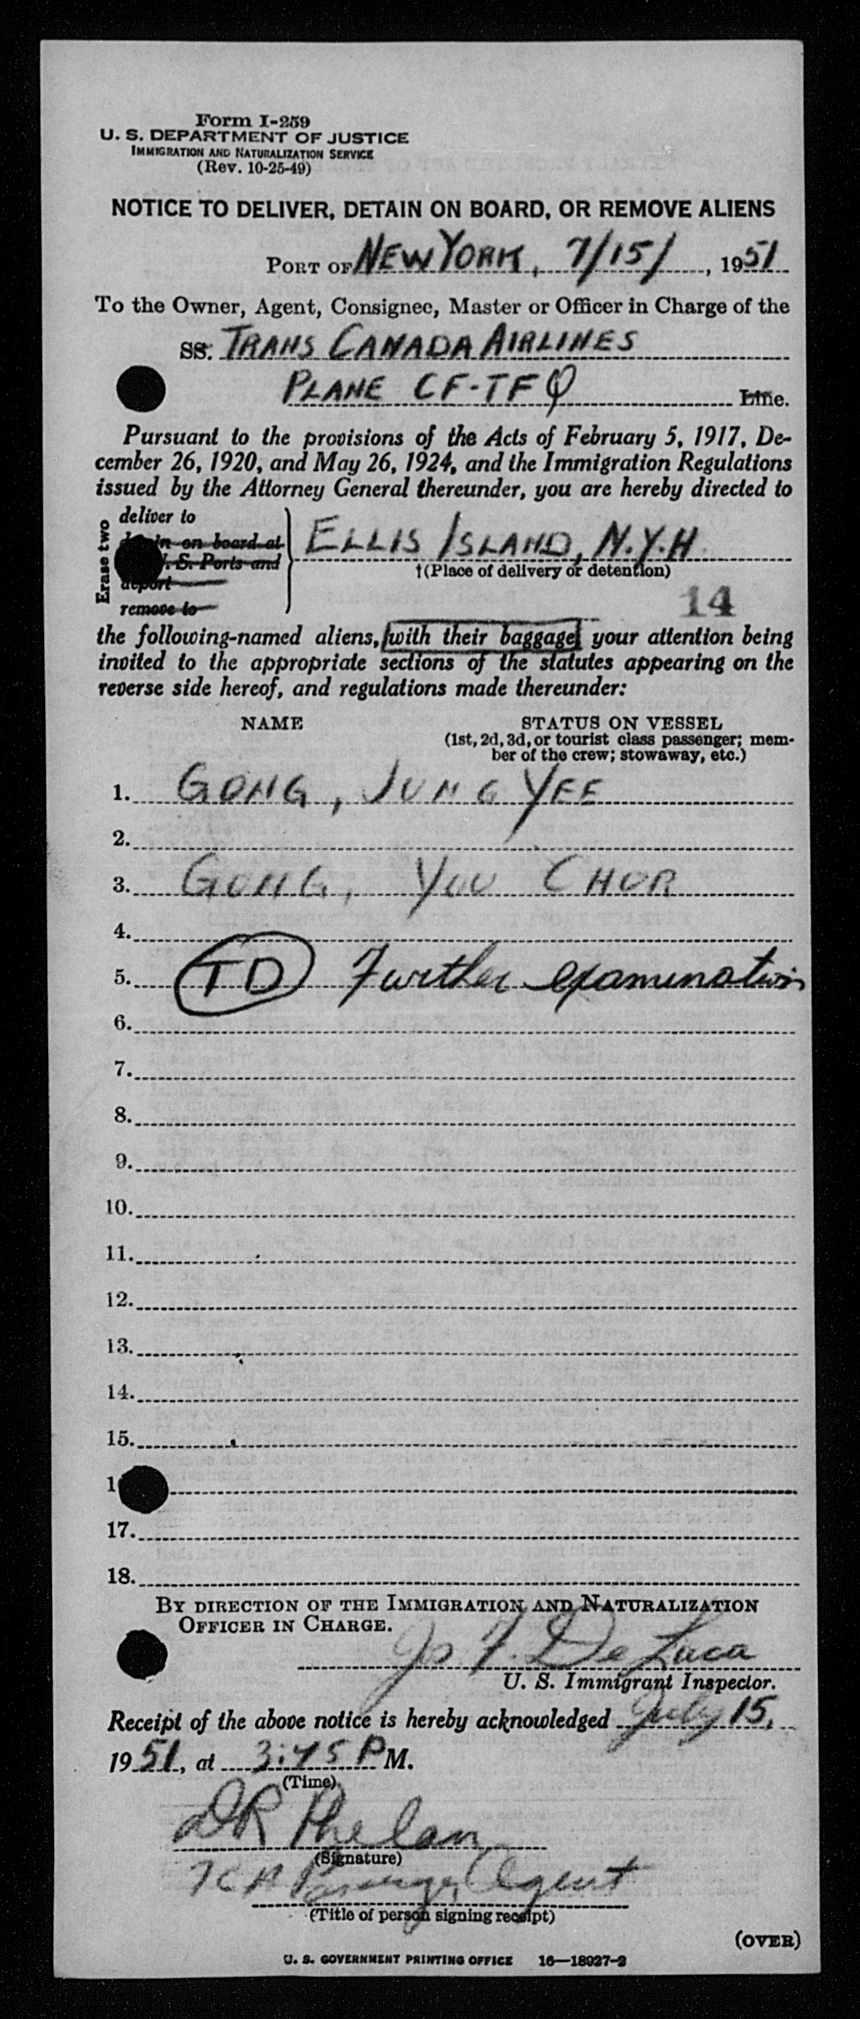 Form I-259
U. S. DEPARTMENT OF JUSTICE
IMMIGRATION AND NATURALIZATION SERVICE
(Rev. 10-25-49)
NOTICE TO DELIVER, DETAIN ON BOARD, OR REMOVE ALIENS
PORT OF NEW YORK, 7/15/, 1951
To the Owner, Agent, Consignee, Master or Officer in Charge of the
SS. TRANS CANADA AIRLINES
PLANE CF-TFQ Line.
Pursuant to the provisions of the Acts of February 5, 1917, De-
cember 26, 1920, and May 26, 1924, and the Immigration Regulations
issued by the Attorney General thereunder, you are hereby directed to
Erase two
deliver to
on board at
S. Ports and
deport
remove to
ELLIS ISLAND, N.Y.H.
†(Place of delivery or detention)
14
the following-named aliens, [with their baggage] your attention being
invited to the appropriate sections of the statutes appearing on the
reverse side hereof, and regulations made thereunder:
NAME STATUS ON VESSEL
(1st, 2d, 3d, or tourist class passenger; mem-
ber of the crew; stowaway, etc.)
1. GONG, JUNG YEE
2.
3. GONG, YOU CHOR
4.
5. TD Further examination
6.
7.
8.
9.
10.
11.
12.
13.
14.
15.
1
17.
18.
BY DIRECTION OF THE IMMIGRATION AND NATURALIZATION
OFFICER IN CHARGE.
F. De Luca
U. S. Immigrant Inspector.
Receipt of the above notice is hereby acknowledged July 15,
1951, at 3:45 P M.
(Time)
DR Phelan
(Signature)
Agent
(Title of person signing receipt)
(OVER)
U. S. GOVERNMENT PRINTING OFFICE 16—18927-2